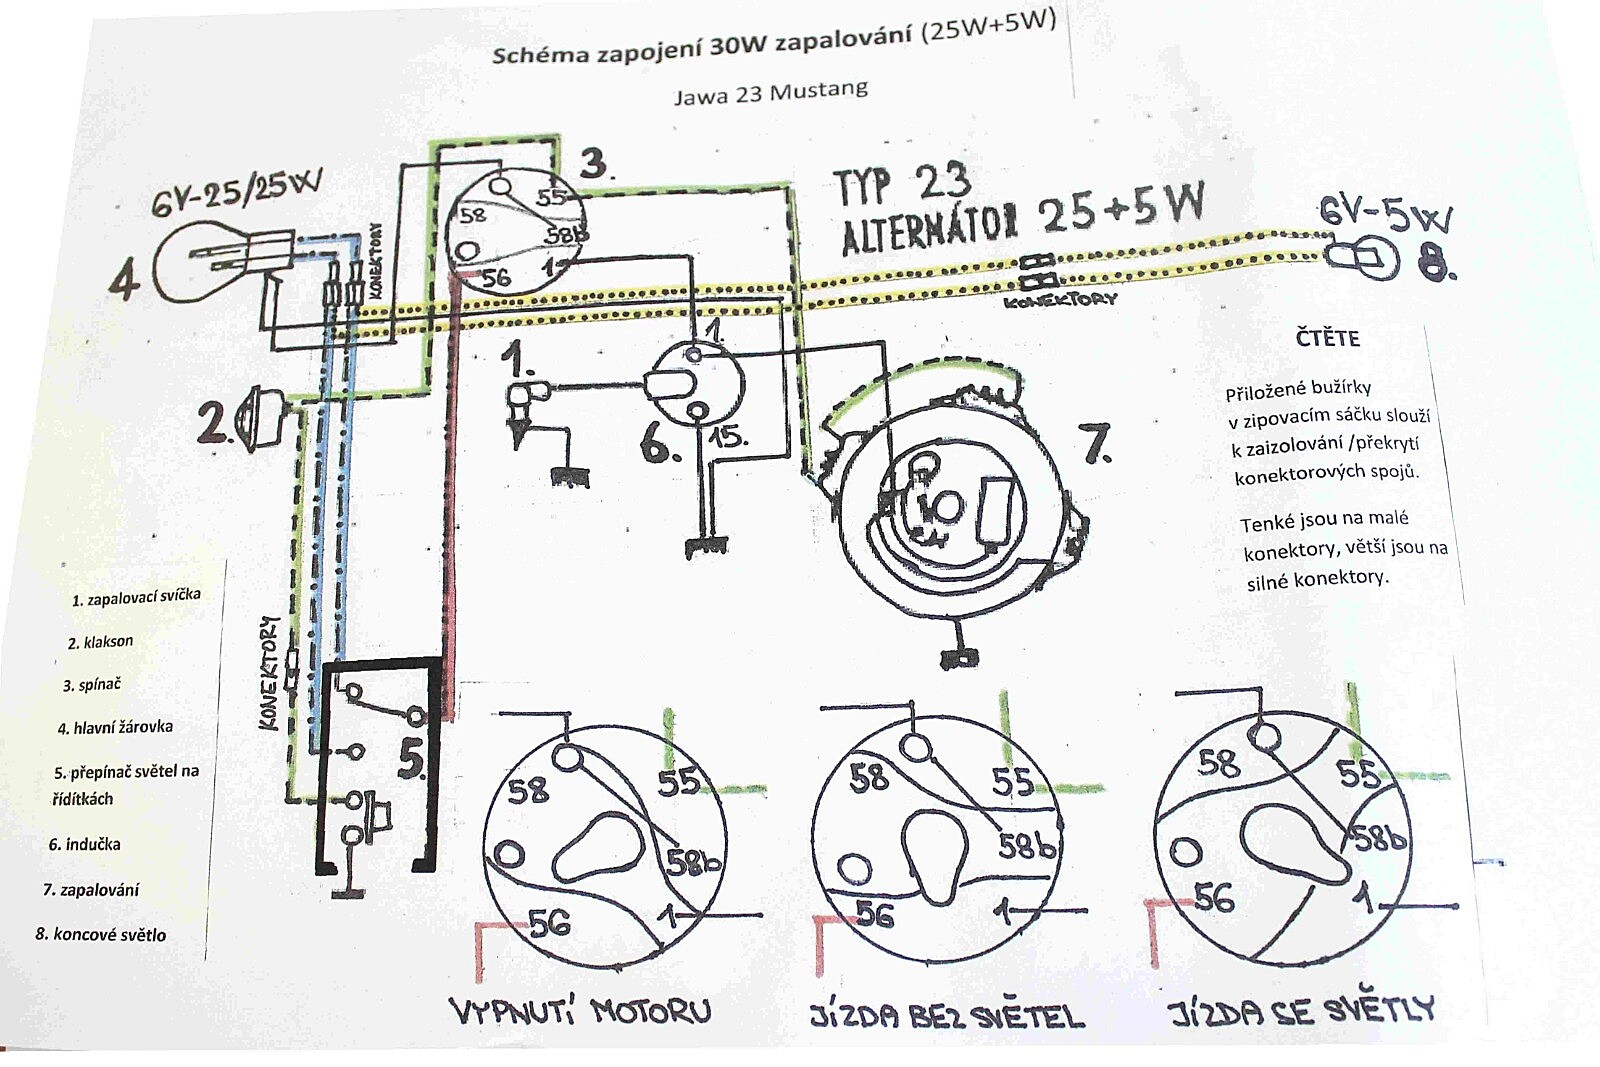 Schéma zapojení 30W zapalování (25W+5W)
Jawa 23 Mustang
6V-25/25W
3.
TYP 23
ALTERNÁTOR 25+5W
6V-5W
55
58
58b
56
1
4
KONEKTORY
8.
KONEKTORY
1.
1.
2.
6.
15.
7.
ČTĚTE
Přiložené bužírky
v zipovacím sáčku slouží
k zaizolování /překrytí
konektorových spojů.
Tenké jsou na malé
konektory, větší jsou na
silné konektory.
1. zapalovací svíčka
2. klakson
3. spínač
4. hlavní žárovka
5. přepínač světel na
řídítkách
6. indučka
7. zapalování
8. koncové světlo
KONEKTORY
5.
58
55
58b
56
1
VYPNUTÍ MOTORU
58
55
58b
56
1
JÍZDA BEZ SVĚTEL
58
55
58b
56
1
JÍZDA SE SVĚTLY